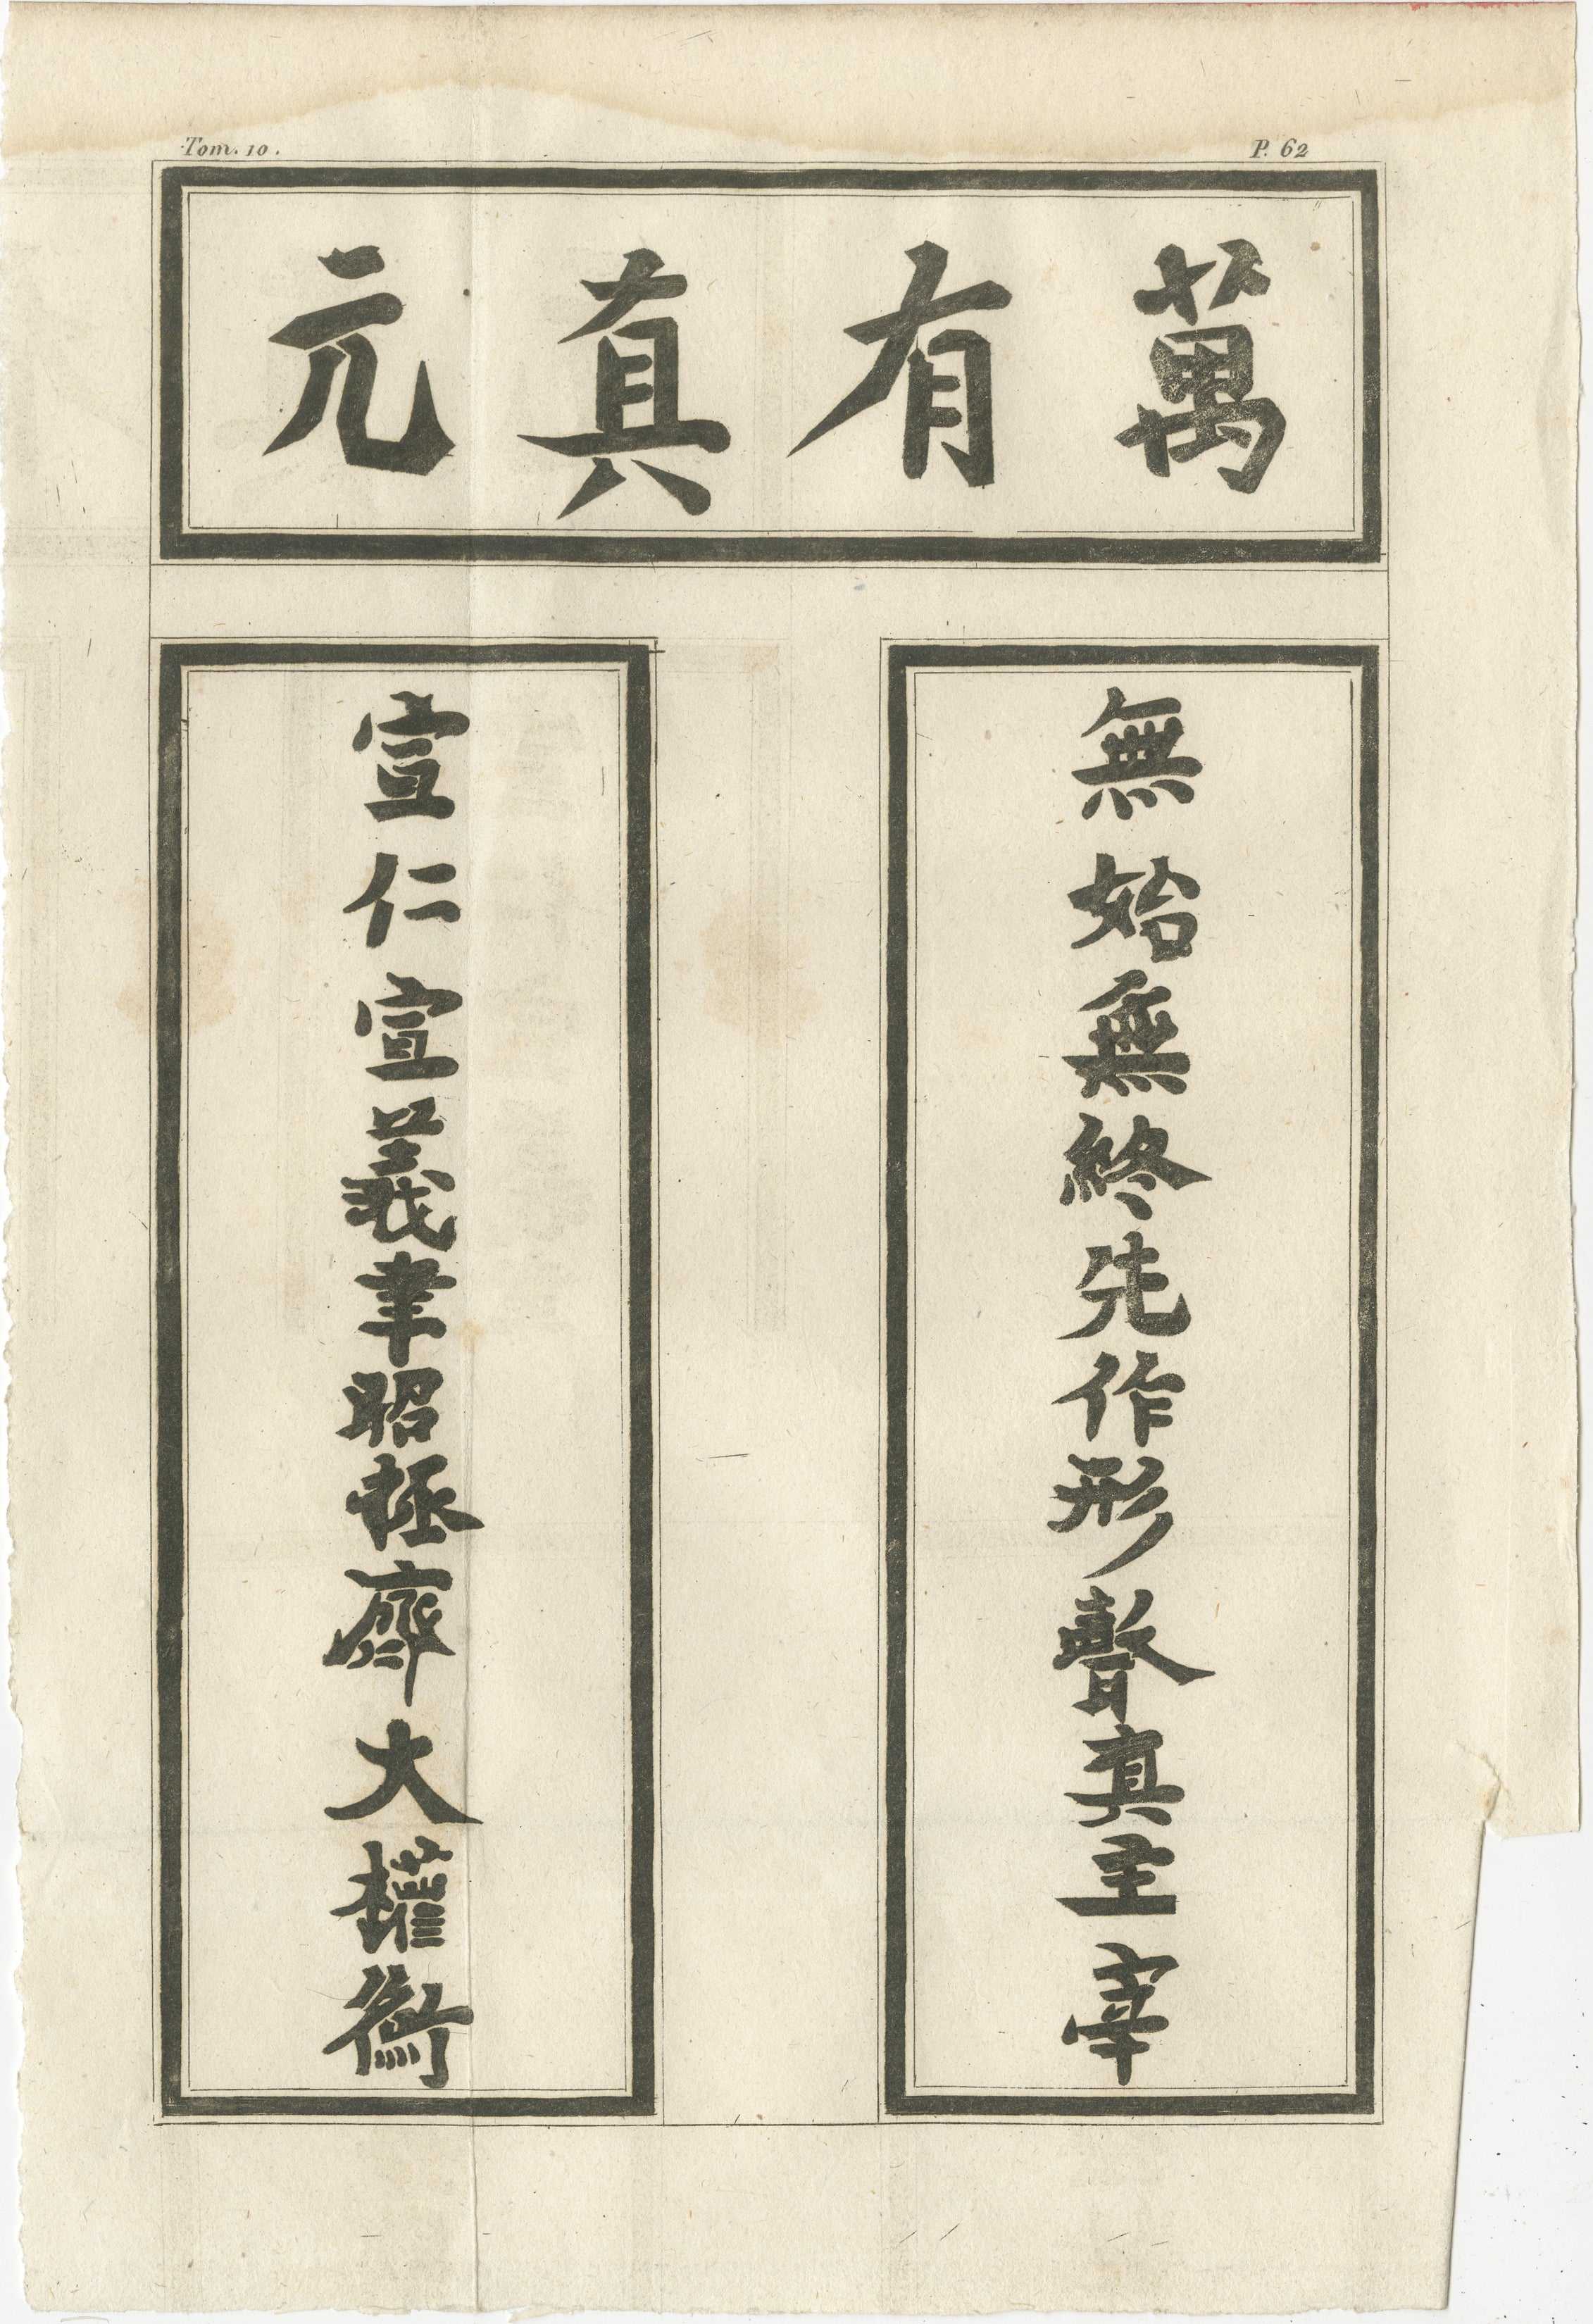 Tom. 10.
P. 62
萬有真元
無始無終先作形聲真主宰
宣仁宣義聿昭拯濟大權衡